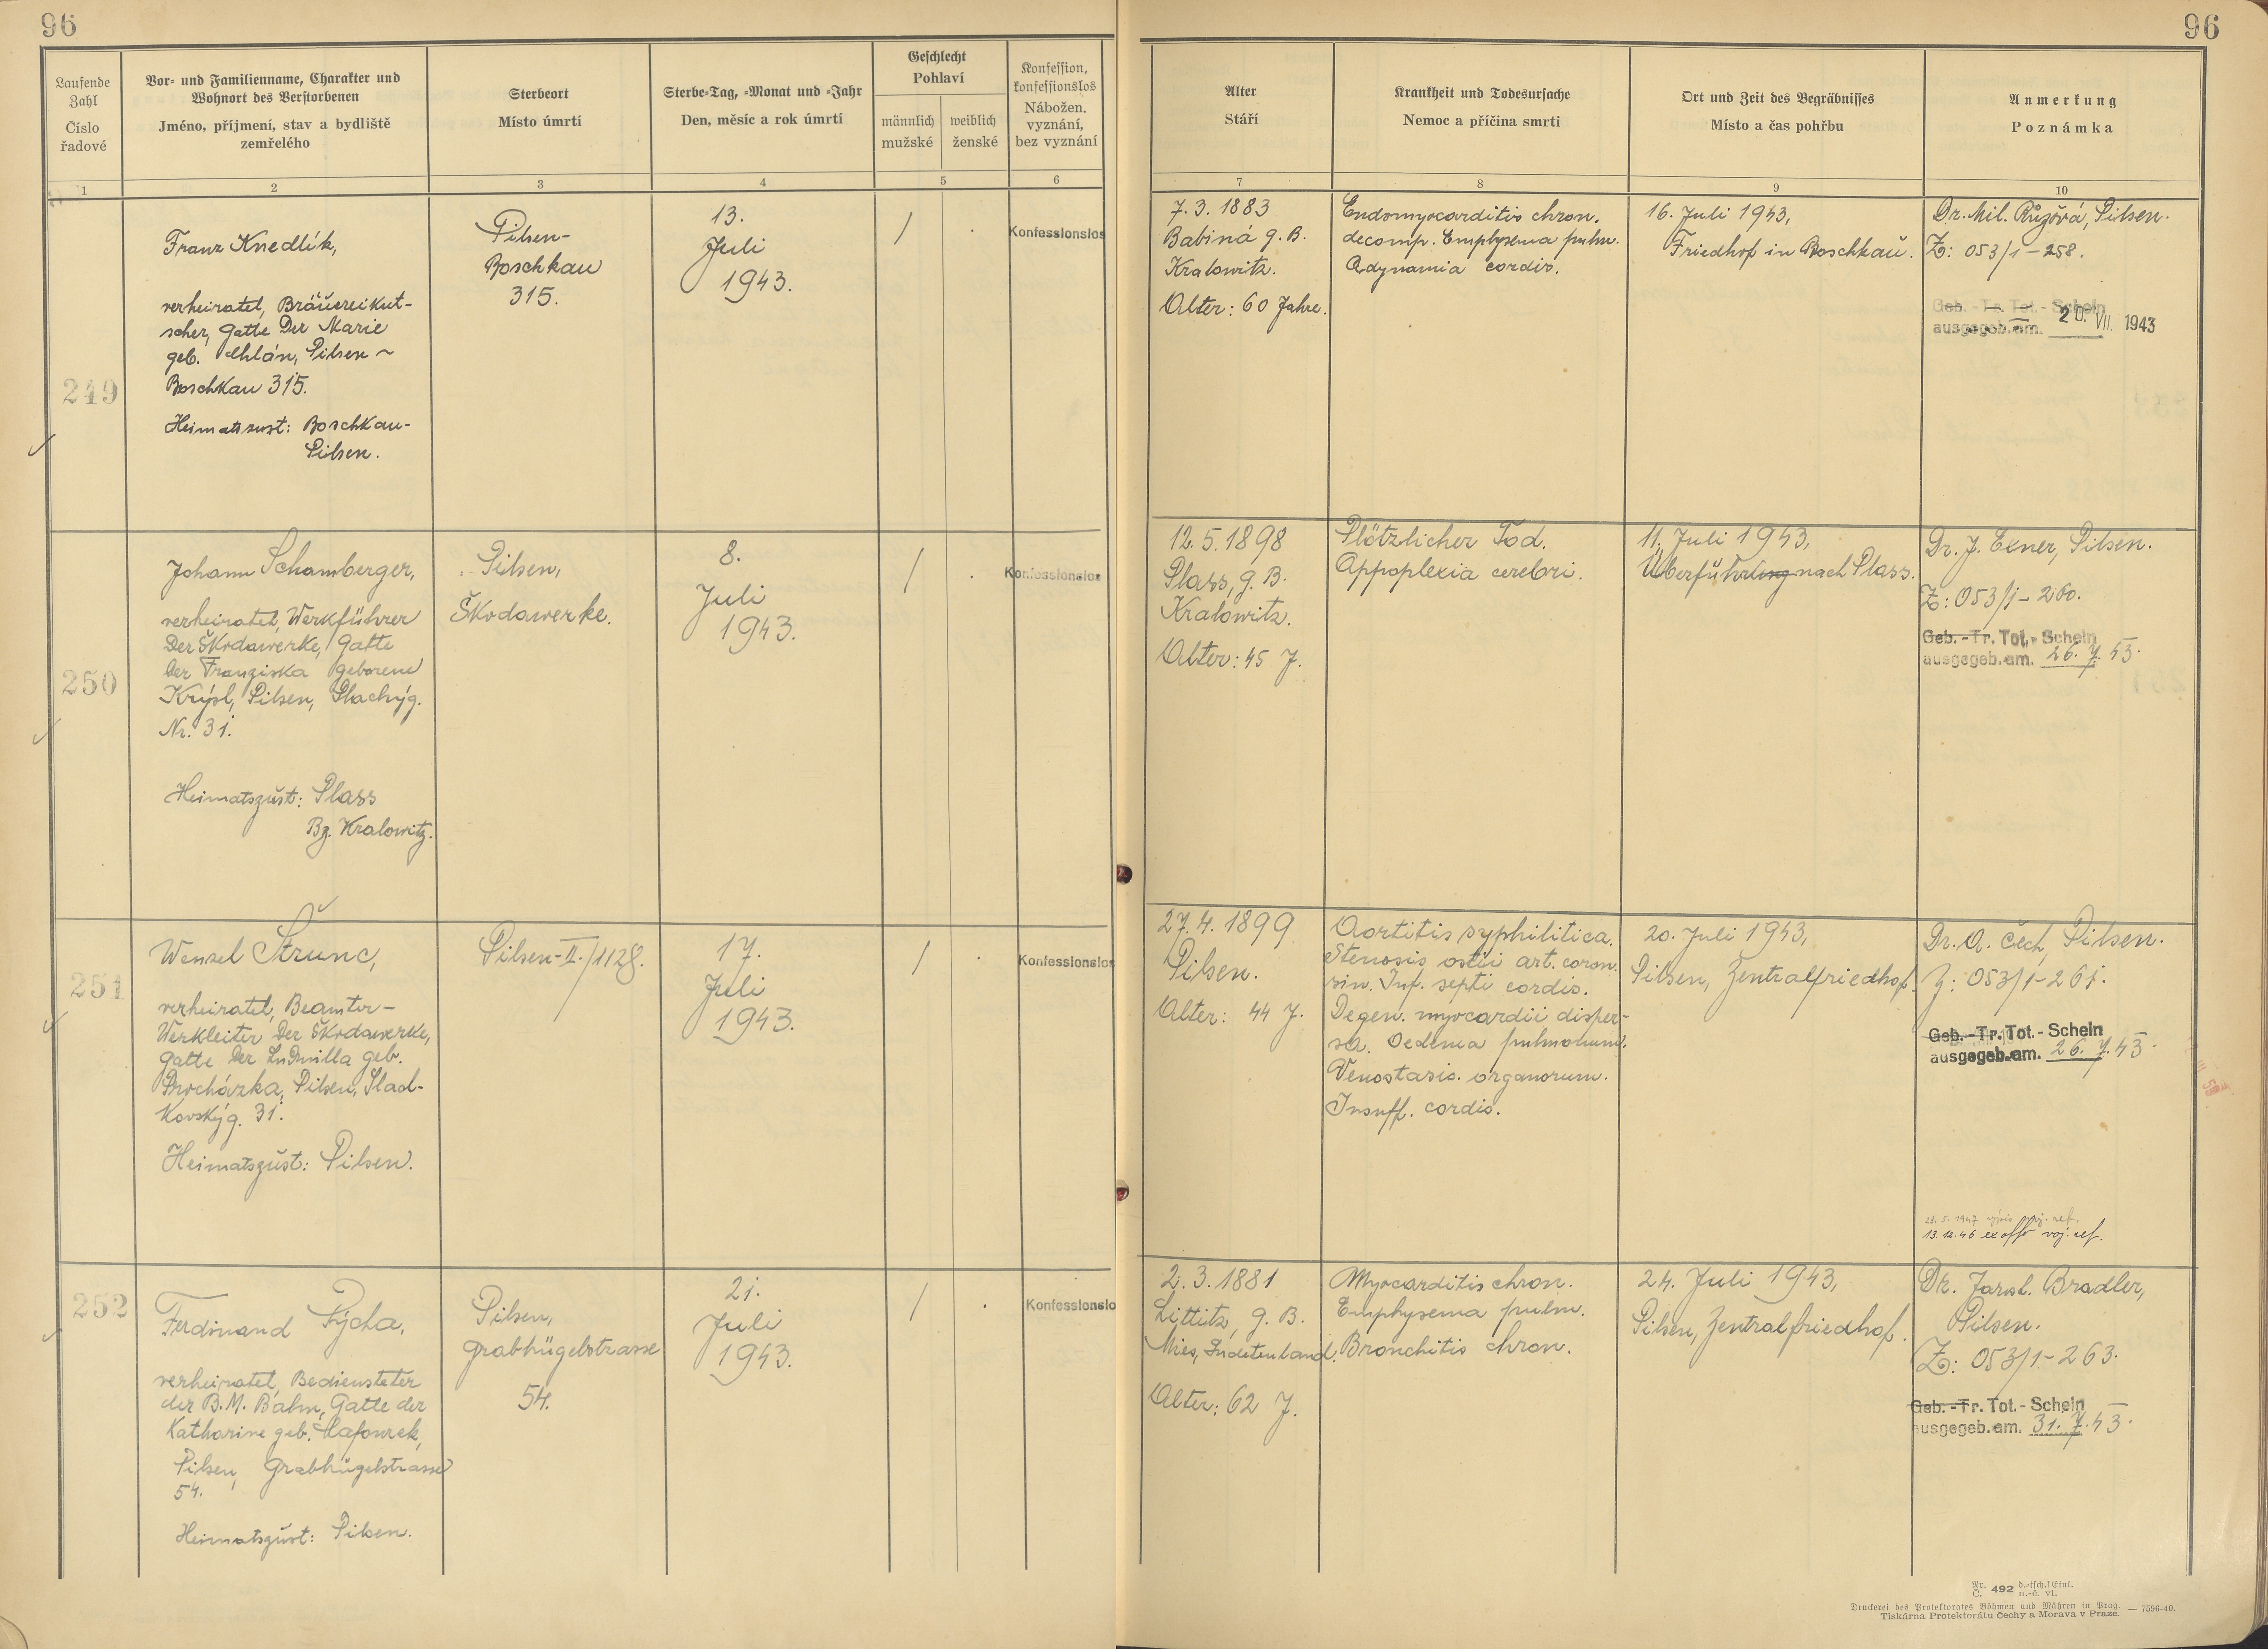 96
96
Laufende
Zahl
Číslo
řadové
Vor- und Familienname, Charakter und
Wohnort des Verstorbenen
Jméno, příjmení, stav a bydliště
zemřelého
Sterbeort
Místo úmrtí
Sterbe-Tag, -Monat und -Jahr
Den, měsíc a rok úmrtí
Geschlecht
Pohlaví
männlich
mužské
weiblich
ženské
Konfession,
konfessionslos
Nábožen.
vyznání,
bez vyznání
Alter
Stáří
Krankheit und Todesursache
Nemoc a příčina smrti
Ort und Zeit des Begräbnisses
Místo a čas pohřbu
Anmerkung
Poznámka
1
2
3
4
5
6
7
8
9
10
249
Franz Knedlík,
verheiratet, Bräuereikut-
scher, Gatte der Marie
geb. Chlán, Pilsen ~
Boschkau 315.
Heimatszust: Boschkau-
Pilsen.
Pilsen-
Boschkau
315.
13.
Juli
1943.
/
.
Konfessionslos
7. 3. 1883
Babiná g. B.
Kralowitz.
Alter: 60 Jahre.
Endomyocarditis chron.
decomp. Emphysema pulm.
Adynamia cordis.
16. Juli 1943,
Friedhof in Boschkau.
Dr. Mil. Růžová, Pilsen.
Z: 053/1-258.
Geb. - Tr. Tot. - Schein
ausgegeb. am. 20. VII. 1943
250
Johann Schamberger,
verheiratet, Werkführer
der Škodawerke, Gatte
der Franziska geborene
Krýsl, Pilsen, Plachýg.
Nr. 31.
Heimatszust: Plass
Bz. Kralowitz.
Pilsen,
Škodawerke.
8.
Juli
1943.
/
.
Konfessionslos
12. 5. 1898
Plass, g. B.
Kralowitz.
Alter: 45 J.
Plötzlicher Tod.
Appoplexia cerebri.
11. Juli 1943,
Überführung nach Plass.
Dr. J. Exner, Pilsen.
Z: 053/1-260.
Geb. - Tr. Tot. - Schein
ausgegeb. am. 26. 7. 43.
251
Wenzel Štrunc,
verheiratet, Beamter-
Werkleiter der Škodawerke,
Gatte der Ludmilla geb.
Procházka, Pilsen, Slad-
kovskýg. 31.
Heimatszust: Pilsen.
Pilsen-II./1128.
17.
Juli
1943.
/
.
Konfessionslos
27. 4. 1899
Pilsen.
Alter: 44 J.
Aortitis syphilitica.
Stenosis ostii art. coron.
sin. Inf. septi cordis.
Degen. myocardii disper-
sa. Oedema pulmonum.
Venostasis. organorum.
Insuff. cordis.
20. Juli 1943,
Pilsen, Zentralfriedhof.
Dr. A. Čech, Pilsen.
Z: 053/1-261.
Geb. - Tr. Tot. - Schein
ausgegeb. am. 26. 7. 43.
13. 12. 46 ex offo voj. ref.
252
Ferdinand Pýcha,
verheiratet, Bediensteter
der B.M. Bahn, Gatte der
Katharine geb.
Pilsen, Grabhügelstrasse
54.
Heimatszust: Pilsen.
Pilsen,
Grabhügelstrasse
54.
21.
Juli
1943.
/
.
Konfessionslo
2. 3. 1881
Littitz, g. B.
Mies, Sudetenland.
Alter: 62 J.
Myocarditis chron.
Emphysema pulm.
Bronchitis chron.
24. Juli 1943,
Pilsen, Zentralfriedhof.
Dr. Jarosl. Bradler,
Pilsen.
Z: 053/1-263.
Geb. - Tr. Tot. - Schein
ausgegeb. am. 31. 7. 43.
Nr. 492 d.-tsch./Einl.
Č. n.-č. vl.
Druckerei des Protektorates Böhmen und Mähren in Prag. — 7596-40.
Tiskárna Protektorátu Čechy a Morava v Praze.